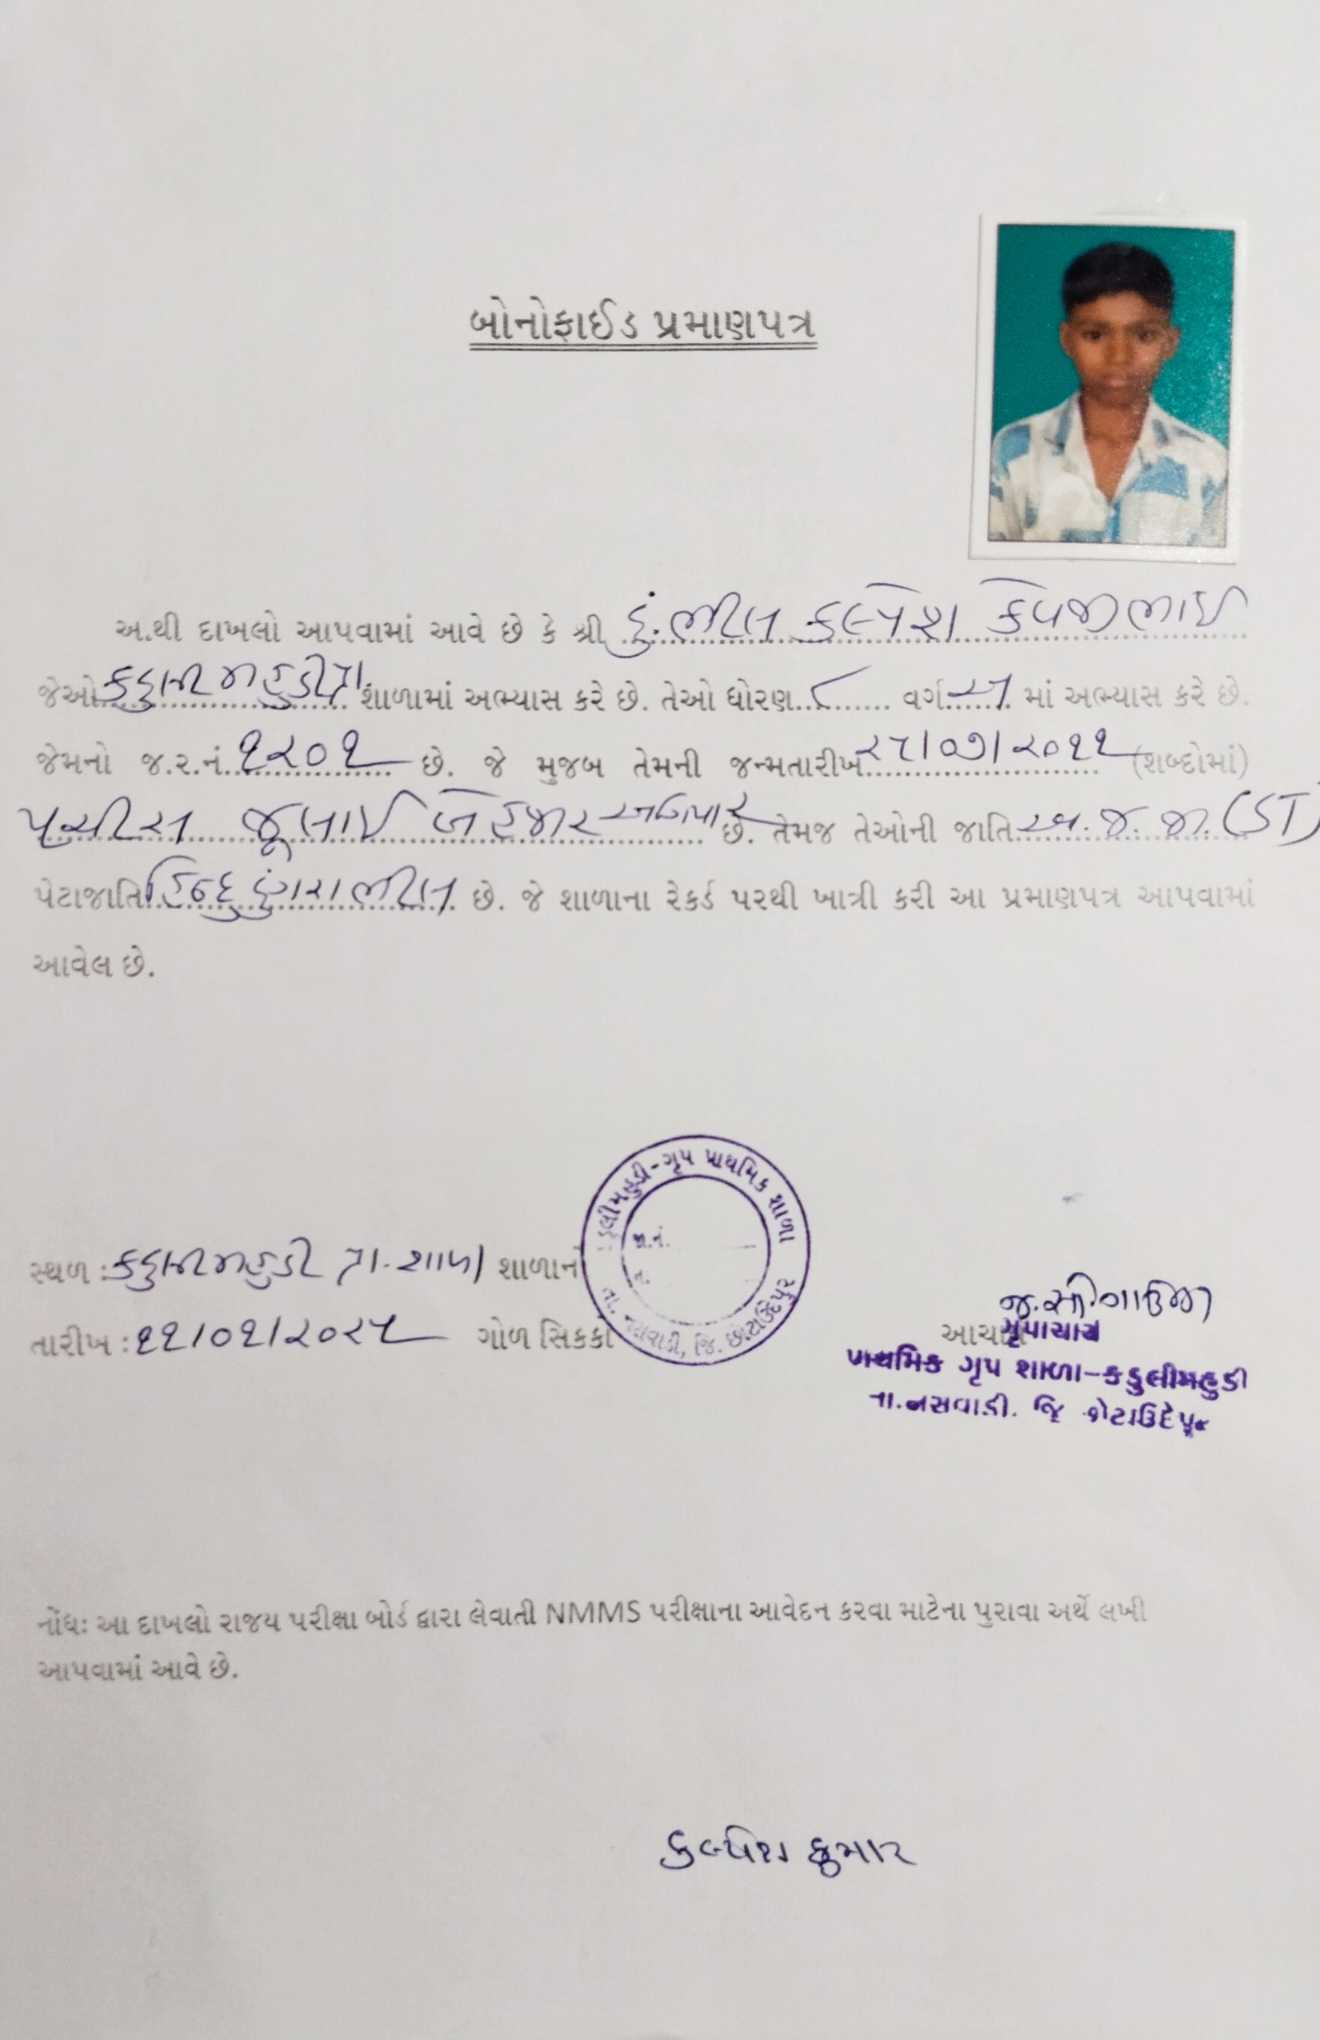 બોનોફાઈડ પ્રમાણપત્ર
અ.થી દાખલો આપવામાં આવે છે કે શ્રી ડું.ભીલ કલ્પેશ કેવજીભાઈ
જેઓ કડુલીમહુડી પ્રા. શાળામાં અભ્યાસ કરે છે. તેઓ ધોરણ ૮ વર્ગ અ માં અભ્યાસ કરે છે.
જેમનો જ.ર.નં. ૧૨૦૧ છે. જે મુજબ તેમની જન્મતારીખ ૨૫/૦૭/૨૦૧૧ (શબ્દોમાં)
પચીસ જૂલાઈ બે હજાર અગિયાર છે. તેમજ તેઓની જાતિ અ.જ.જા. (ST)
પેટાજાતિ હિન્દુ ડુંગરાભીલ છે. જે શાળાના રેકર્ડ પરથી ખાત્રી કરી આ પ્રમાણપત્ર આપવામાં
આવેલ છે.
કડુલીમહુડી-ગૃપ પ્રાથમિક શાળા
જા.નં.
તા. નસવાડી, જિ. છોટાઉદેપુર
સ્થળ : કડુલીમહુડી પ્રા. શાળા શાળાનો
તારીખ : ૧૧/૦૧/૨૦૨૫ ગોળ સિક્કો
આચાર્ય
ગૃપાચાર્ય
પ્રાથમિક ગૃપ શાળા-કડુલીમહુડી
તા.નસવાડી. જિ છોટાઉદેપુર
નોંધઃ આ દાખલો રાજય પરીક્ષા બોર્ડ દ્વારા લેવાતી NMMS પરીક્ષાના આવેદન કરવા માટેના પુરાવા અર્થે લખી
આપવામાં આવે છે.
કલ્પેશ કુમાર